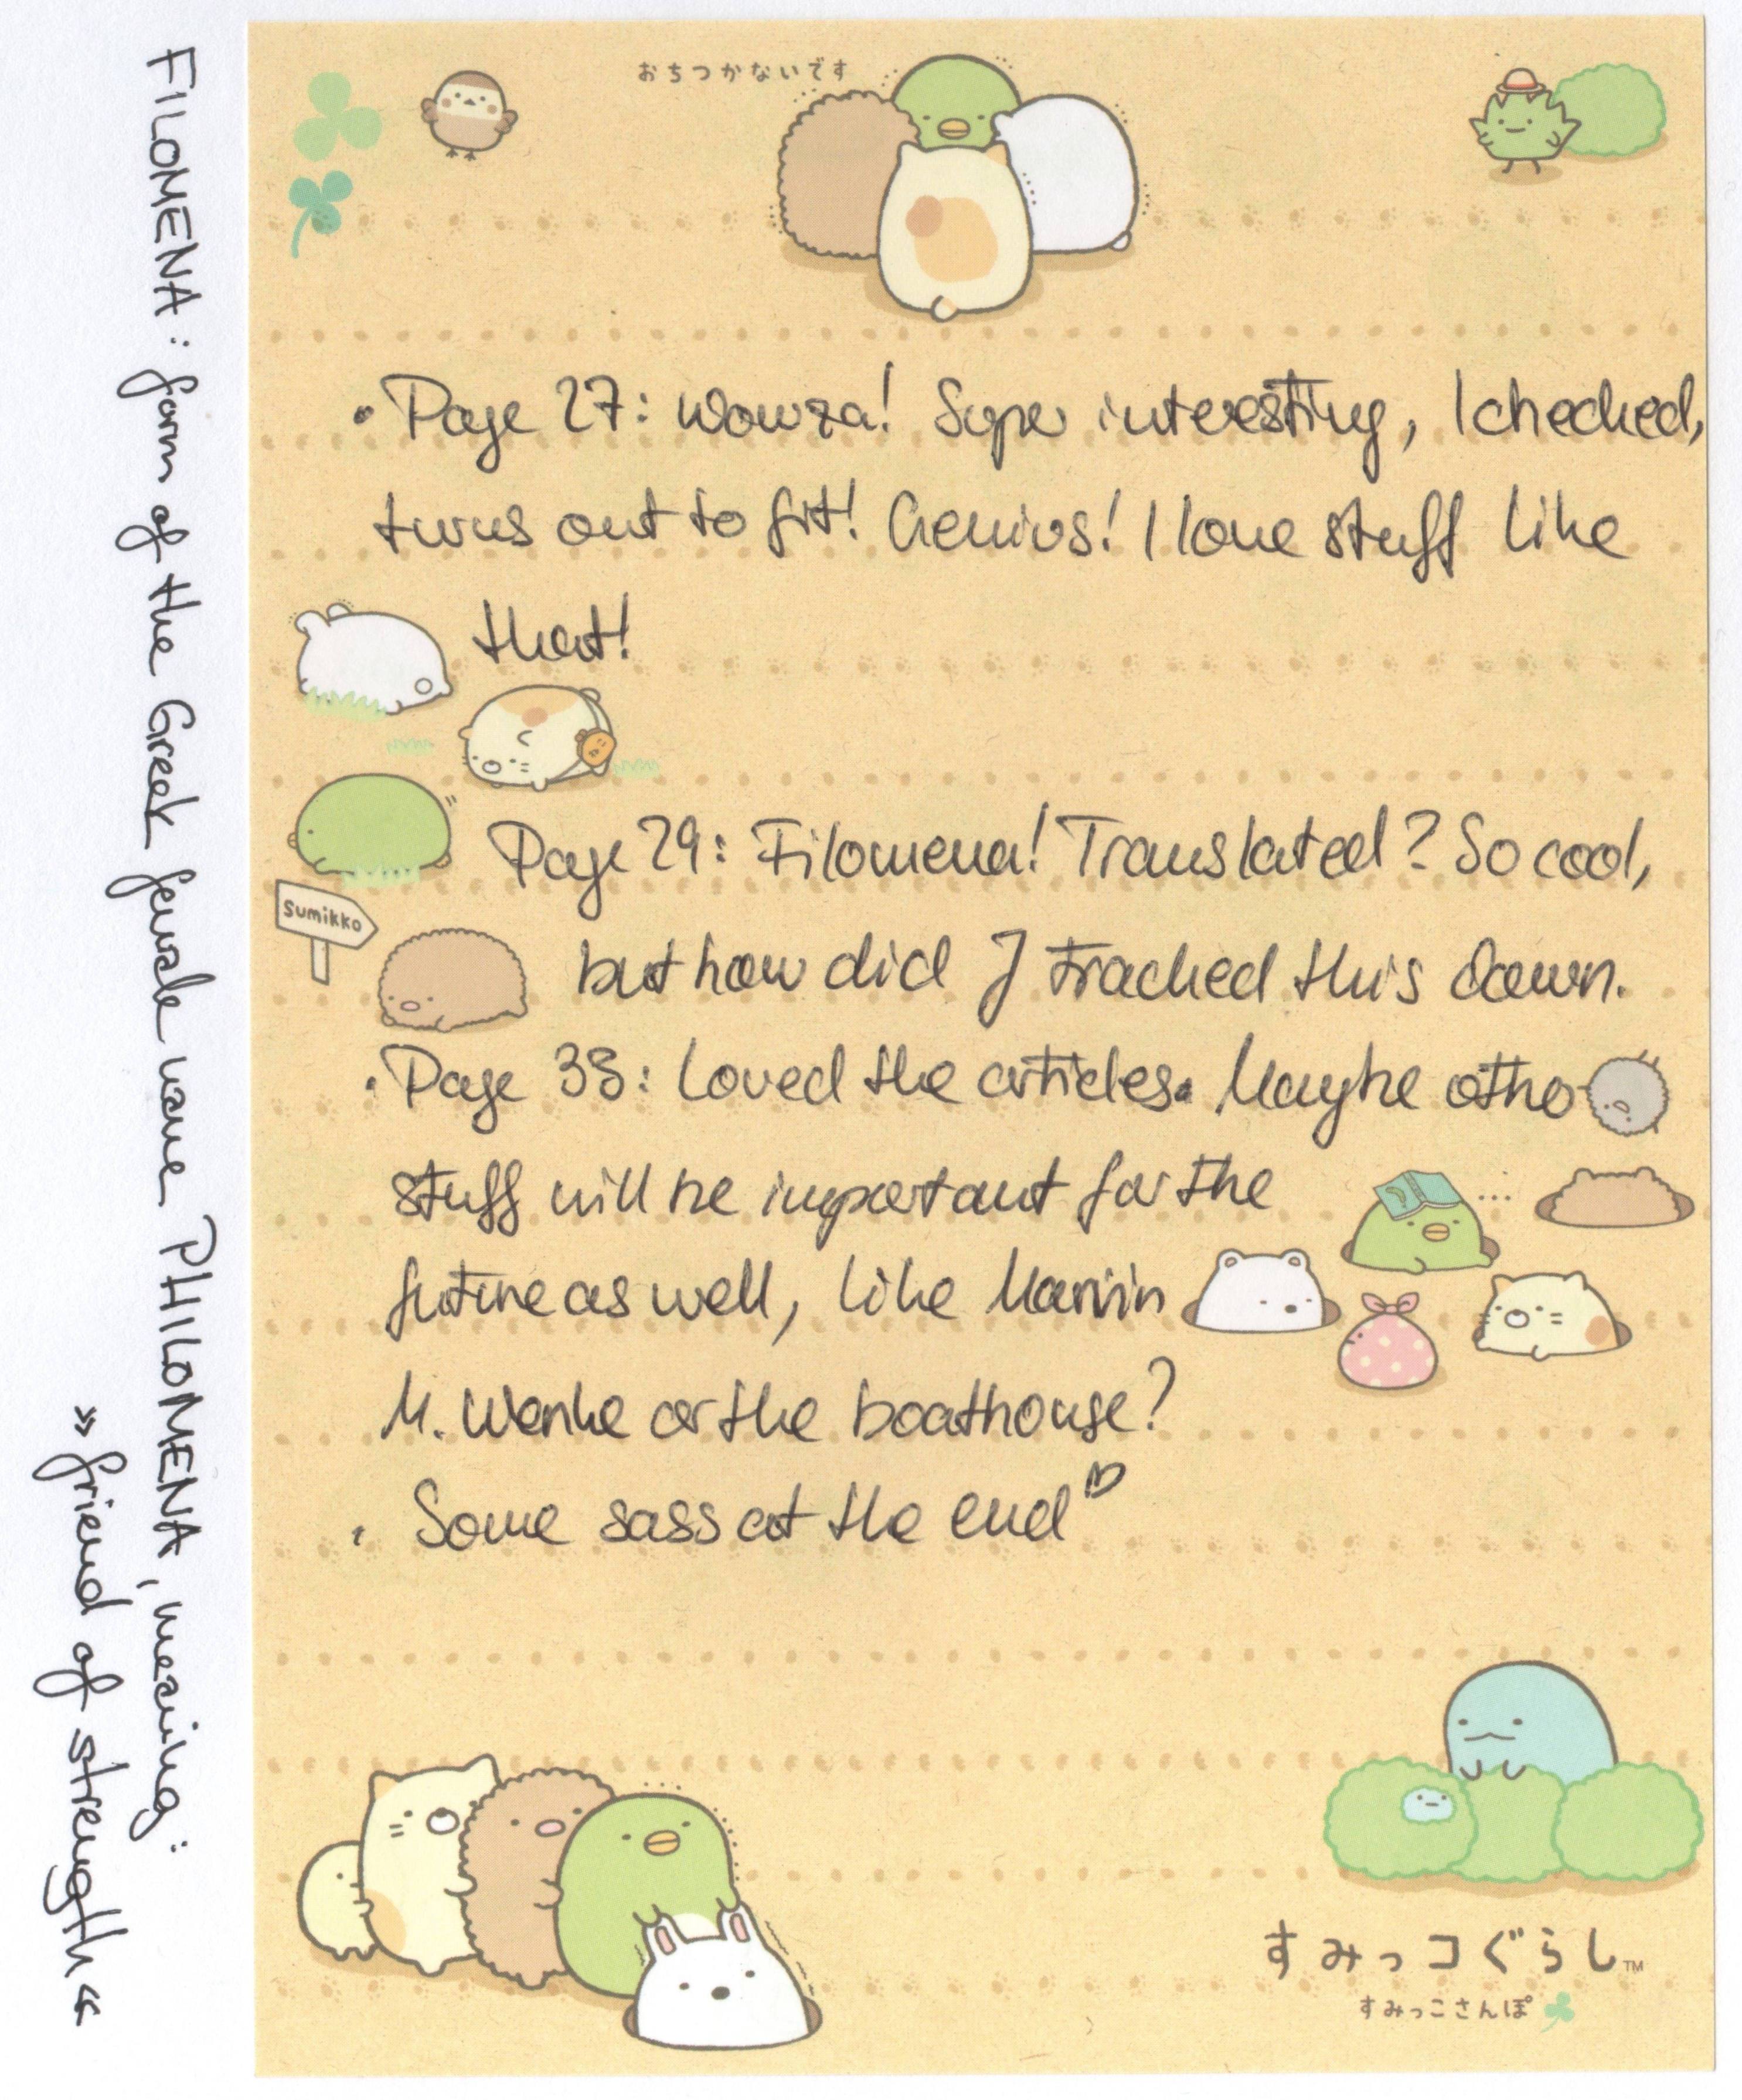 おちつかないです
• Page 27: Wowza! Super interesting, I checked,
turns out to fit! Genius! I love stuff like
that!
Page 29: Filomena! Translated? So cool,
Sumikko
but how did J tracked this down.
• Page 38: Loved the articles. Maybe other
stuff will be important for the
future as well, like Marvin
M. Wenke or the boathouse?
• Some sass at the end
すみっコぐらし™
すみっこさんぽ
FILOMENA: form of the Greek female name PHILOMENA, meaning:
»friend of strength«